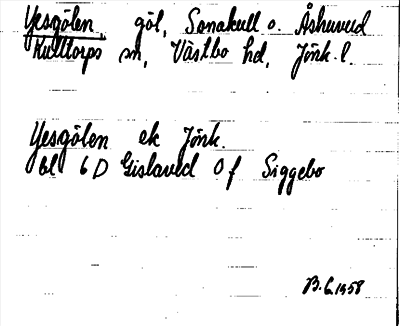 Yesgölen, göl, Sonakull o. Åshuvud
Kulltorps sn, Västbo hd, Jönk. l.
Yesgölen ek Jönk.
bl 6 D Gislaved 0 f Siggebo
1958